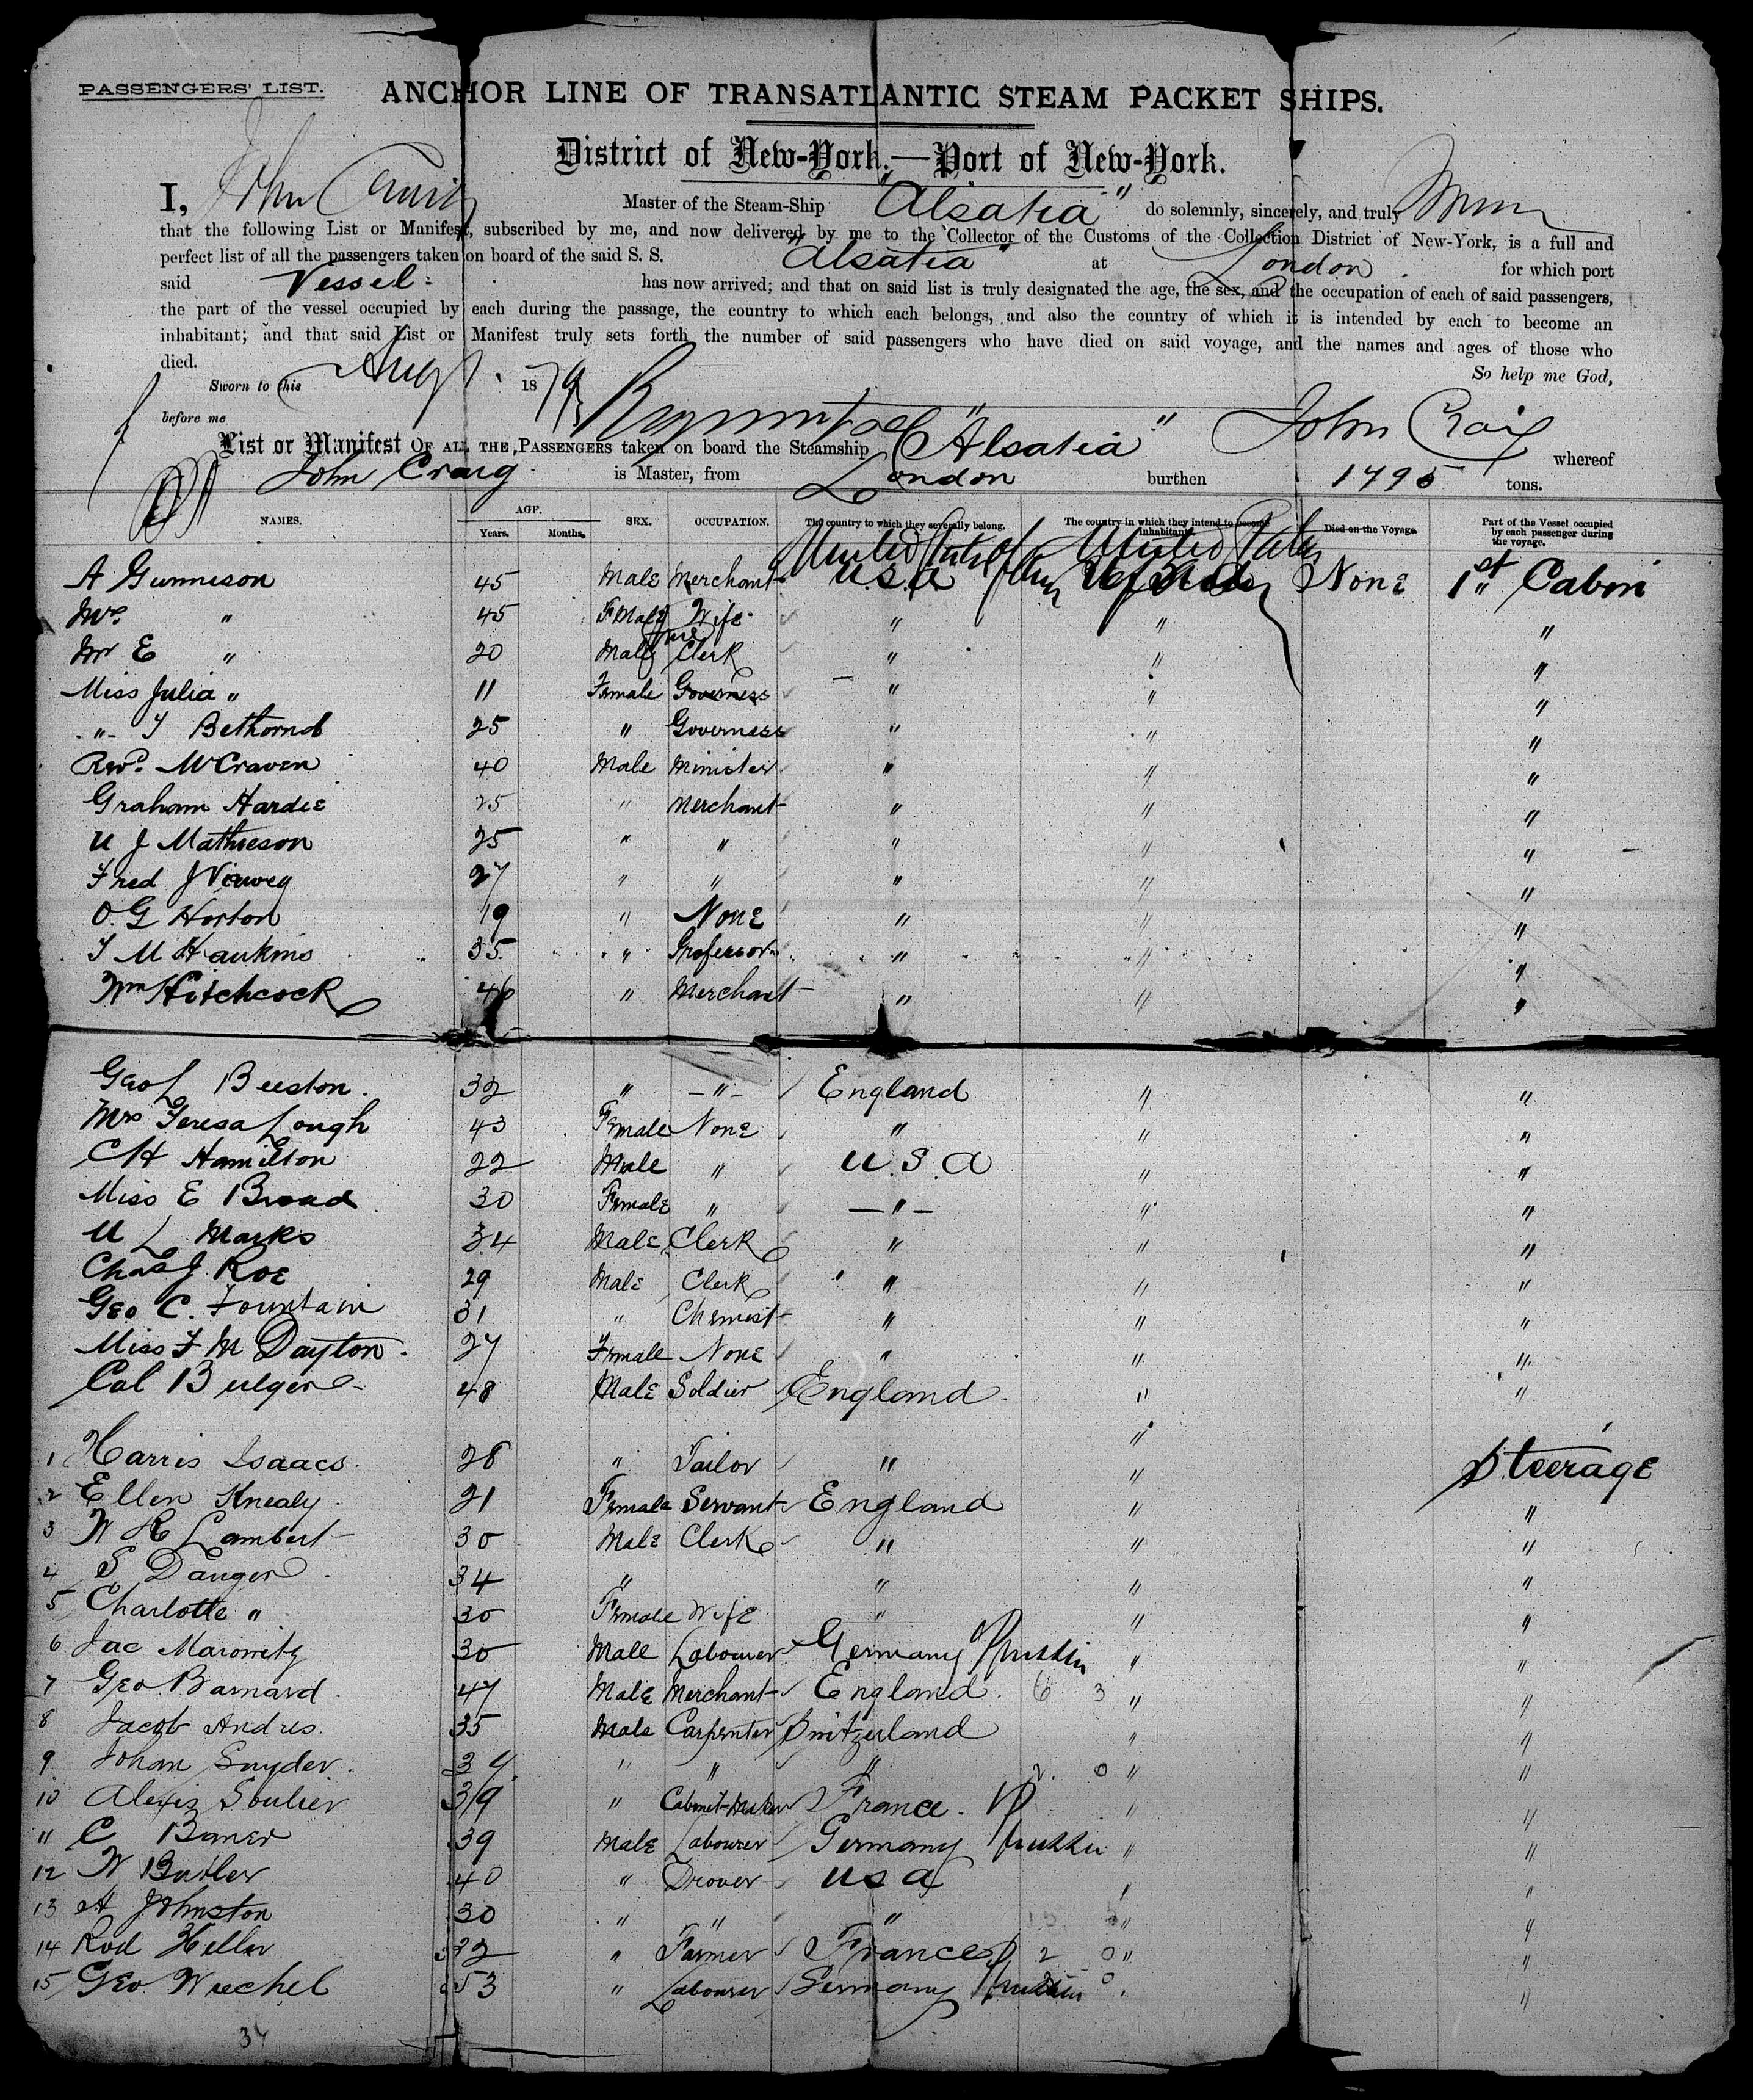 PASSENGERS' LIST.
ANCHOR LINE OF TRANSATLANTIC STEAM PACKET SHIPS.
District of New-York,—Port of New-York.
I, John Craig Master of the Steam-Ship "Alsatia" do solemnly, sincerely, and truly
that the following List or Manifest, subscribed by me, and now delivered by me to the Collector of the Customs of the Collection District of New-York, is a full and
perfect list of all the passengers taken on board of the said S. S. "Alsatia" at London for which port
said Vessel has now arrived; and that on said list is truly designated the age, the sex, and the occupation of each of said passengers,
the part of the vessel occupied by each during the passage, the country to which each belongs, and also the country of which it is intended by each to become an
inhabitant; and that said List or Manifest truly sets forth the number of said passengers who have died on said voyage, and the names and ages of those who
died.
So help me God,
Sworn to this Augt. 1879
before me John Craig
List or Manifest OF ALL THE PASSENGERS taken on board the Steamship "Alsatia" whereof
John Craig is Master, from London burthen 1795 tons.
NAMES. AGE. Years. Months. SEX. OCCUPATION. The country to which they severally belong. The country in which they intend to become inhabitants. Died on the Voyage. Part of the Vessel occupied by each passenger during the voyage.
United States of United States
A Gunnison 45 Male Merchant U.S.A None 1st Cabin
Mrs. " 45 Female Wife " " "
Mr E " 20 Male Clerk " " "
Miss Julia " 11 Female Governess " " "
" 25 " Governess " " "
Revd. McCraven 40 Male Minister " " "
Graham Hardie 25 " Merchant " " "
U J Mathieson 25 " " " " "
Fred J Vieweg 27 " " " " "
O. G Horton 19 " None " " "
T M Hawkins 35 " Professor " " "
Wm Hitchcock 46 " Merchant " " "
Geo L Beeston 32 " " England " "
Mrs Teresa Lough 43 Female None " " "
C H Hamilton 22 Male " U.S.A " "
Miss E Broad 30 Female " " " "
M L Marks 34 Male Clerk " " "
Chas J. Roe 29 Male Clerk " " "
Geo C. Fountain 31 " Chemist " " "
Miss F M Dayton 27 Female None " " "
Col Bulger 48 Male Soldier England " "
1 Harris Isaacs 28 " Tailor " " Steerage
2 Ellen Knealy 21 Female Servant England " "
3 W R Lambert 30 Male Clerk " " "
4 S Danger 34 " " " "
5 Charlotte " 30 Female Wife " " "
6 Jac Marowitz 30 Male Labourer Germany Prussia " "
7 Geo Barnard 47 Male Merchant England 6 3 " "
8 Jacob Andres 35 Male Carpenter Switzerland " "
9 Johan Snyder 34 " " " 0 " "
10 Alexis Soulier 39 " Cabinet-Maker France " "
" C Baner 39 Male Labourer Germany Prussia " "
12 W Butler 40 " Drover U S A " "
13 A Johnston 30 " " " " "
14 Rod Heller 32 " Farmer France 2 0 " "
15 Geo Wiechel 53 " Labourer Germany Prussia 0 " "
34